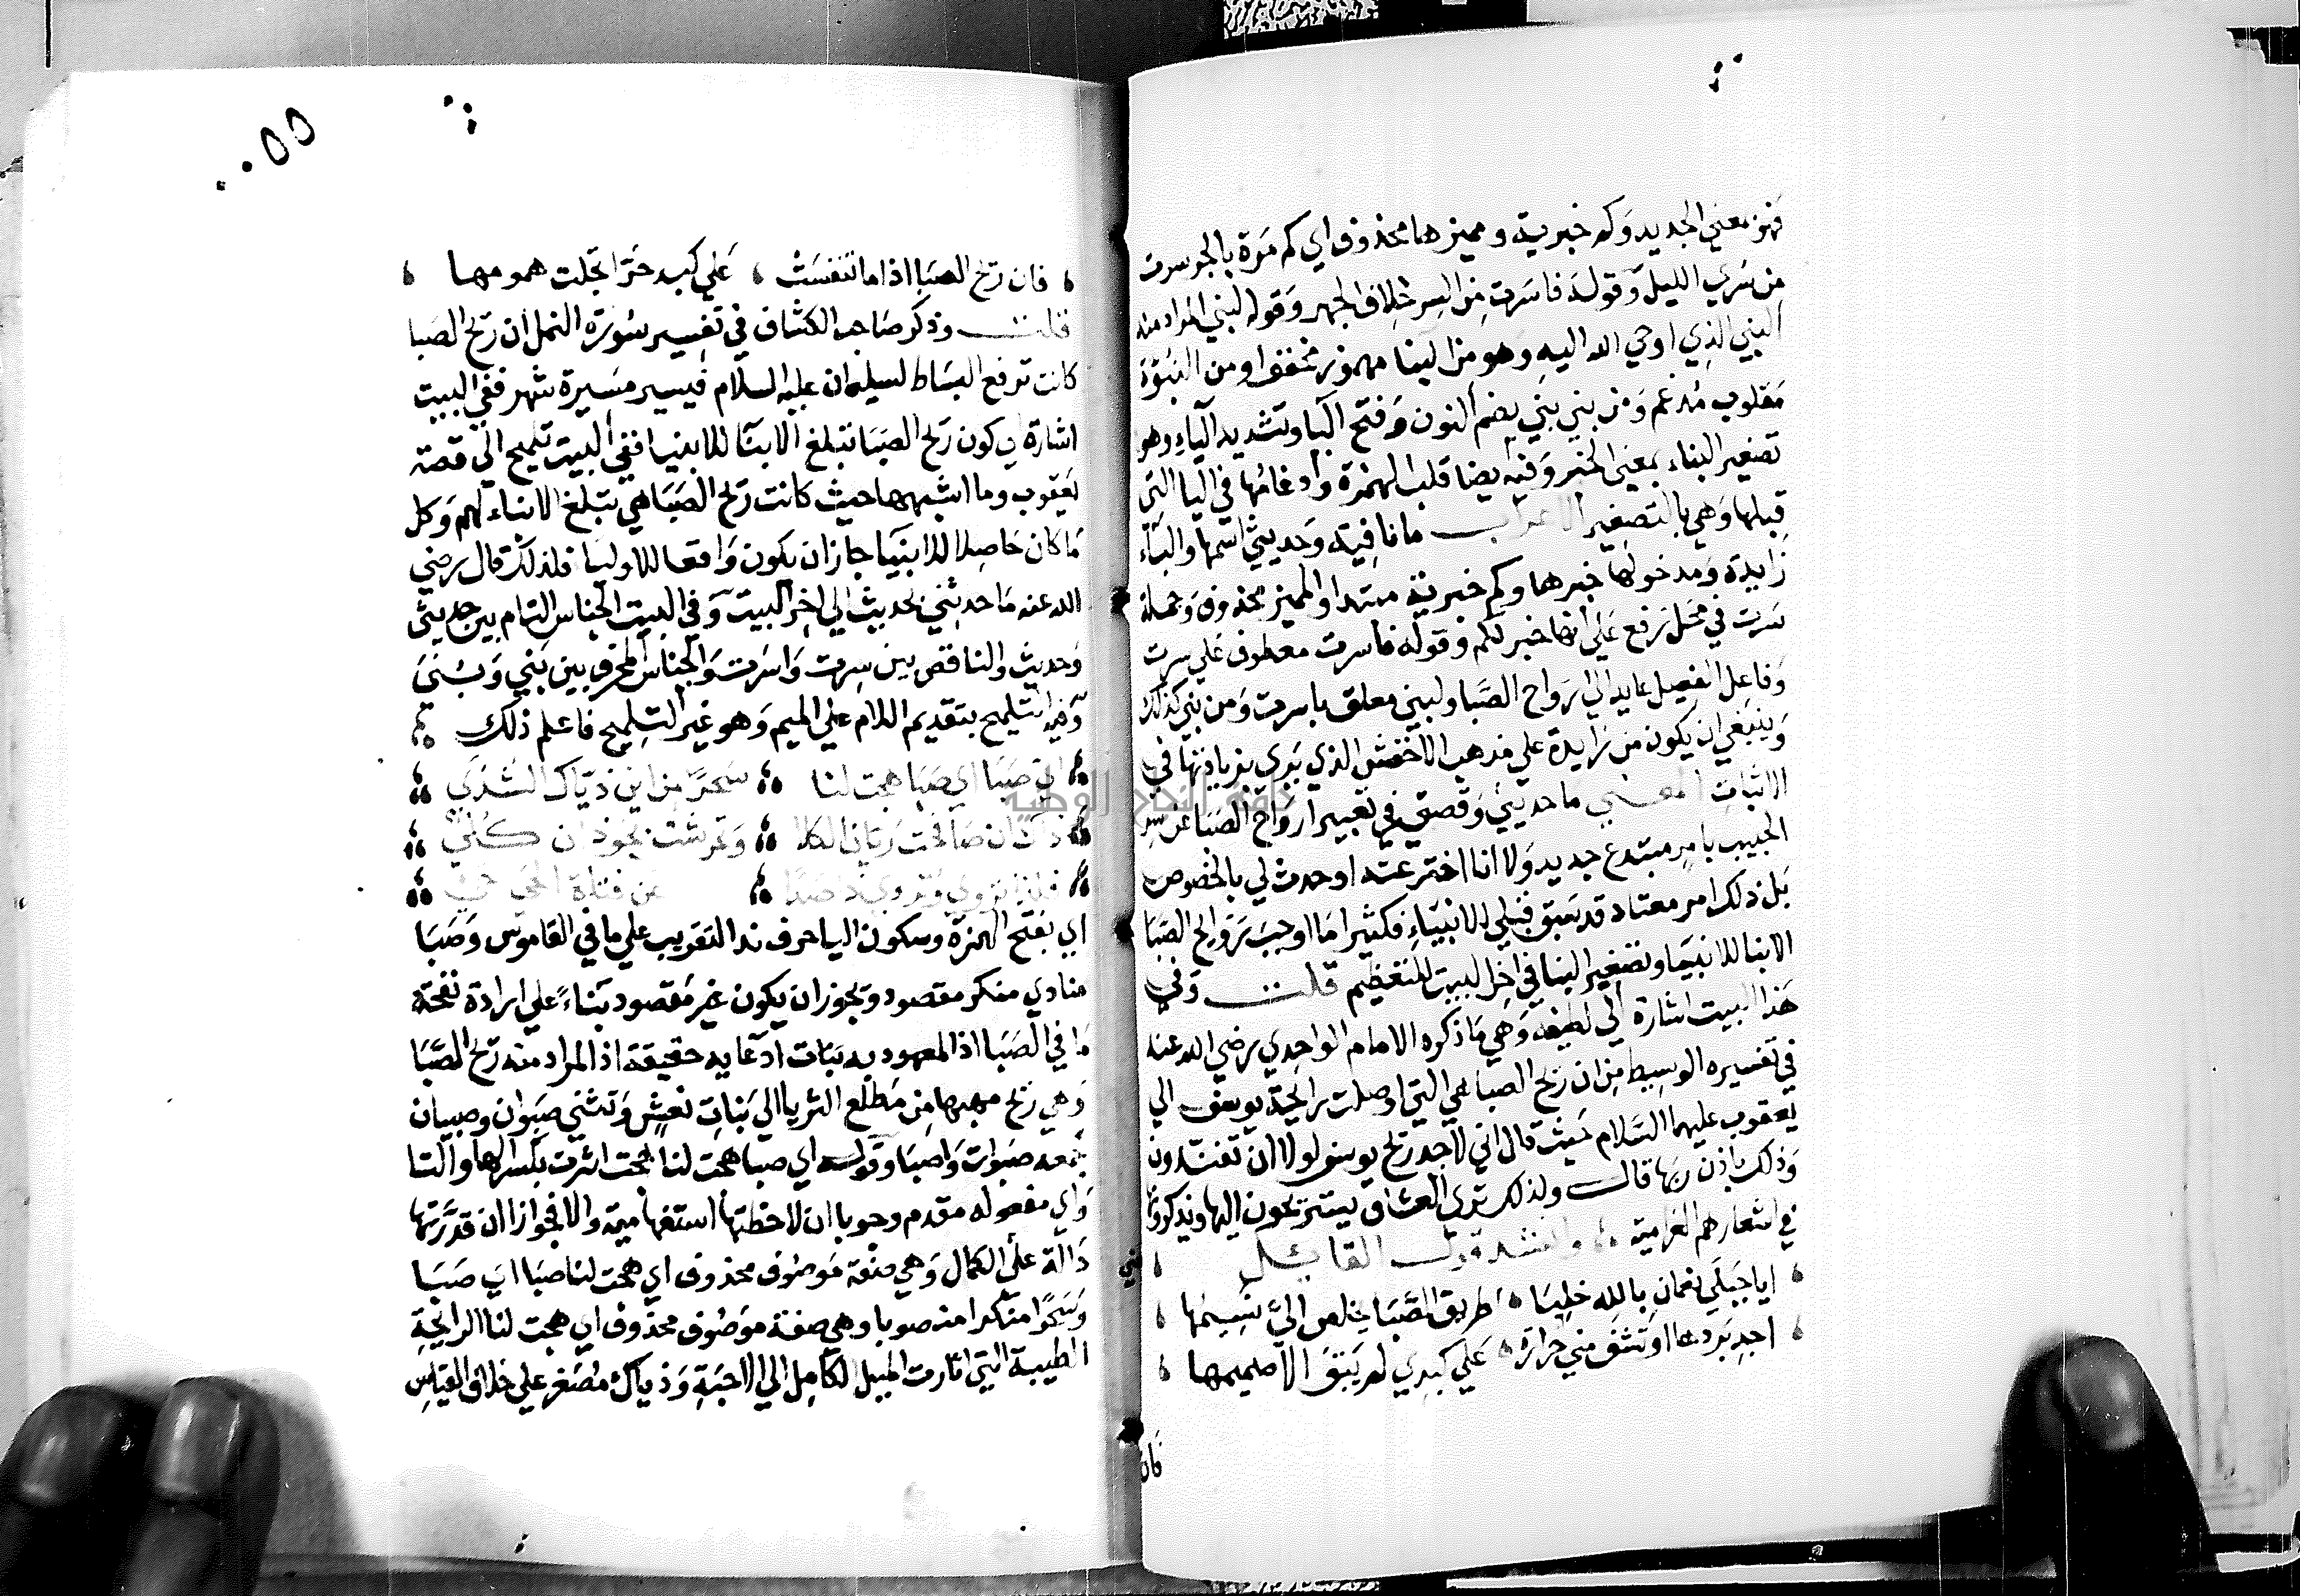 فهو بمعني الجديد وكم خبرية ومميزها محذوف اي كم مرة بالجو سرت
من سري الليل وقوله فاسرت من السر خلاف الجهر وقوله لنبي المراد منه
النبي الذي اوحي الله اليه وهو من النبا مهموز مخفف او من النبوة
مقلوب مدغم ومن نبي نبي بضم النون وفتح البا وتشديد الياء وهو
تصغير النباء بمعني الخبر وفيه ايضا قلب الهمزة وادغامها في اليا التي
قبلها وهي يا التصغير الاعراب ما نافية وحديثي اسمها والباء
زايدة ومدخولها خبرها وكم خبرية مبتدا والمميز محذوف وجملة
سرت في محل رفع علي انها خبر لكم وقوله فاسرت معطوف علي سرت
وفاعل الفعل عايد الي ارواح الصبا ولنبي معلق باسرت ومن نبي كذلك
وينبغي ان يكون من زايدة علي مذهب الاخفش الذي يري بزيادتها في
الاثبات المعني ما حديثي وقصتي في تعبير ارواح الصبا عن سر
الحبيب بامر مبتدع جديد ولا انا اخترعته او حدث لي بالخصوص
بل ذلك امر معتاد قد سبق قبلي للانبياء فكثيرا ما اوحيت روايح الصبا
الانبا للانبيا وتصغير النبا في اخر البيت للتعظيم قلت وفي
هذا البيت اشارة الي لطيفه وهي ما ذكره الامام الواحدي رضي الله عنه
في تفسيره الوسيط من ان ريح الصبا هي التي اوصلت رايحة يوسف الي
يعقوب عليهما السلام حيث قال اني لاجد ريح يوسف لولا ان تفندون
وذلك باذن ربها قالت ولذلك تري العشاق يستريحون اليها ويذكرونها
في اشعارهم الغرامية وانشد قول القائل
ايا جبلي نعمان بالله خليا طريق الصبا يخلص الي نسيمها
اجد بردها او تشف مني حرارة علي كبدي لم يبق الا صميمها
فان
٥٥
فان ريح الصبا اذا ما تنفست علي كبد حرا تجلت همومها
قلت وذكر صاحب الكشاف في تفسير سورة النمل ان ريح الصبا
كانت ترفع البساط لسليمان عليه السلام فيسير مسيرة شهر ففي البيت
اشارة الي كون ريح الصبا تبلغ الانبا للانبيا ففي البيت تلميح الي قصة
يعقوب وما اشبهها حيث كانت ريح الصبا هي تبلغ الانباء لهم وكل
ما كان حاصلا للانبيا جاز ان يكون واقعا للاوليا فلذلك قال رضي
الله عنه ما حديثي بحديث الي اخر البيت وفي البيت الجناس التام بين حديثي
وحديث والناقص بين سرت واسرت والجناس المحرف بين نبي ونبي
وفيه التلميح بتقديم اللام علي الميم وهو غير التلميح فاعلم ذلك
اي صبا اي صبا هجت لنا سحرا من اين ذياك الشذي
ذاك ان صافحت ريان الكلا وتحرشت بحوذان كلي
فلذا تروي وتروي ذا صدا عن فتاة الحي حي
اي بفتح الهمزة وسكون اليا حرف ندا للقريب علي ما في القاموس وصبا
منادي منكر مقصود ويجوز ان يكون غير مقصود بناء علي ارادة نفحة
ما في الصبا اذ المعهود به بنات ادعا به حقيقة اذ المراد منه ريح الصبا
وهي ريح مهبها من مطلع الثريا الي بنات نعش وتثني صبوان وصبيان
جمعه صبوات واصبا وقوله اي صبا هجت لنا هجت اثرت بكسر الها والتا
واي مفعوله مقدم وجوبا ان لاحظتها استفهامية والا فجوازا ان قدرتها
دالة علي الكمال وهي صفة موصوف محذوف اي هجت لنا صبا اي صبا
وسحرا منكرا منصوبا وهي صفة موصوف محذوف اي هجت لنا الرايحة
الطيبة التي اثارت الميل الكامل الي الاحبة وذياك مصغر علي خلاف القياس